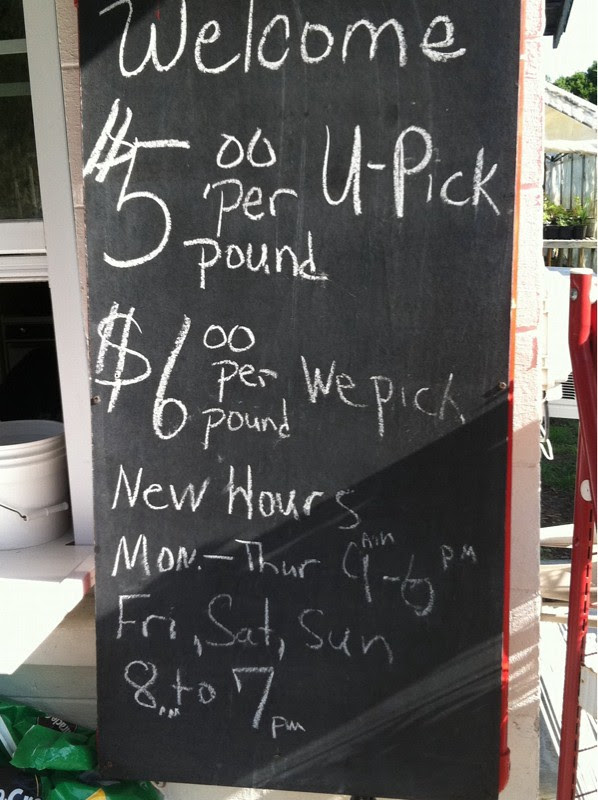 Welcome
$5 00 per pound U-Pick
$6 00 per pound We pick
New Hours
Mon.-Thur 9 Am -6 PM
Fri, Sat, Sun
8 to 7 pm